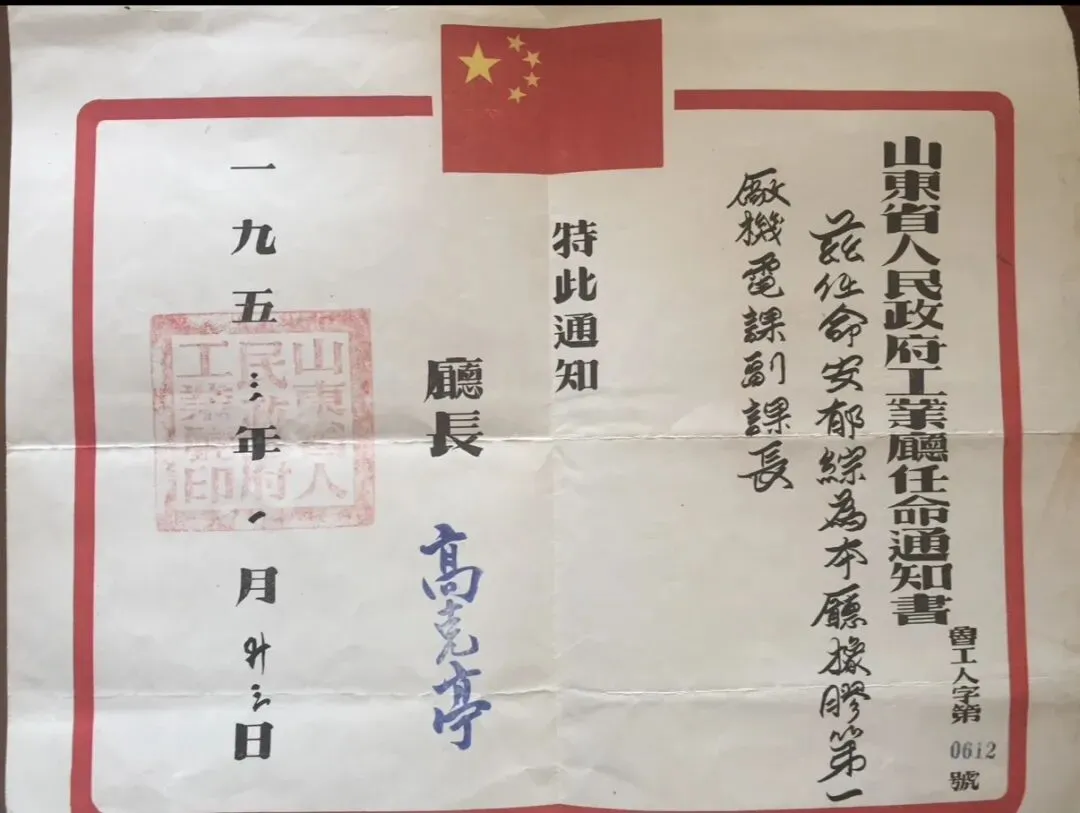 山東省人民政府工業廳任命通知書
魯工人字第0612號
茲任命安郁綜為本廳橡膠第一
廠機電課副課長
特此通知
廳長 高克亭
一九五三年一月廿三日
山東省人
民政府
工業廳印